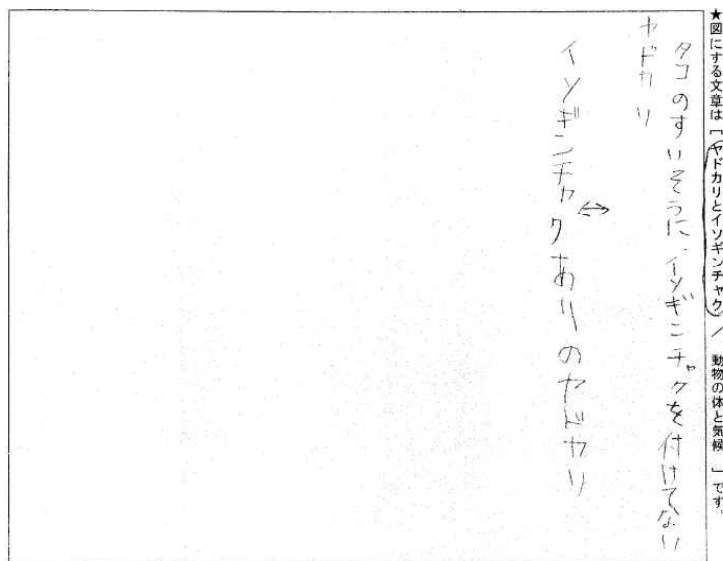 ★図にする文章は「ヤドカリとイソギンチャク / 動物の体と気候 」です。
タコのすいそうに、イソギンチャクを付けてない
ヤドカリ
↔
イソギンチャクありのヤドカリ